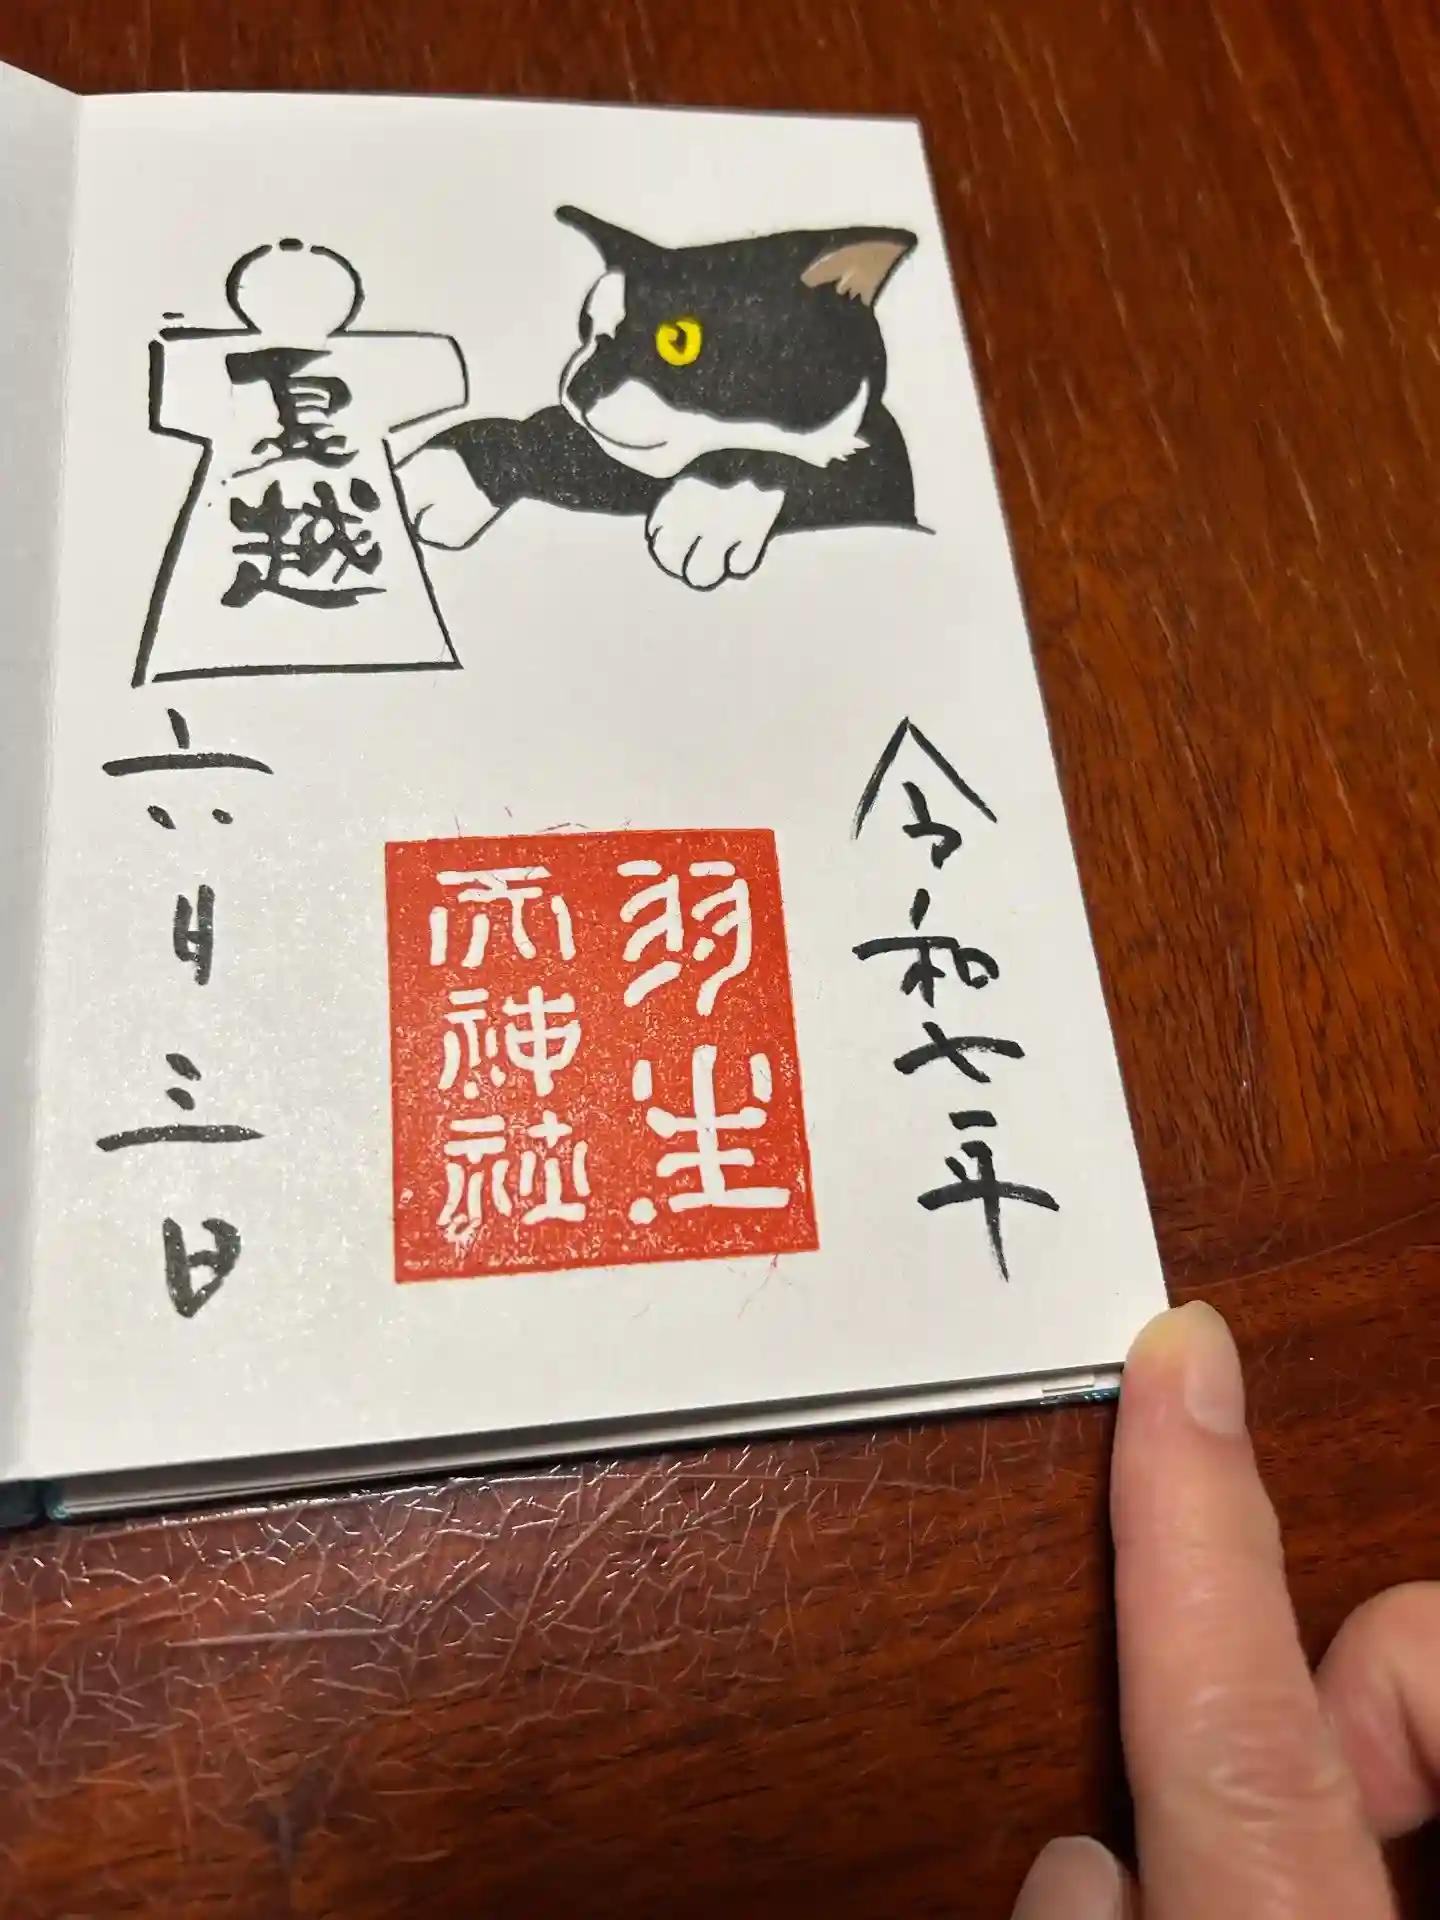 令和七年
羽生
天神社
夏越
六月三日